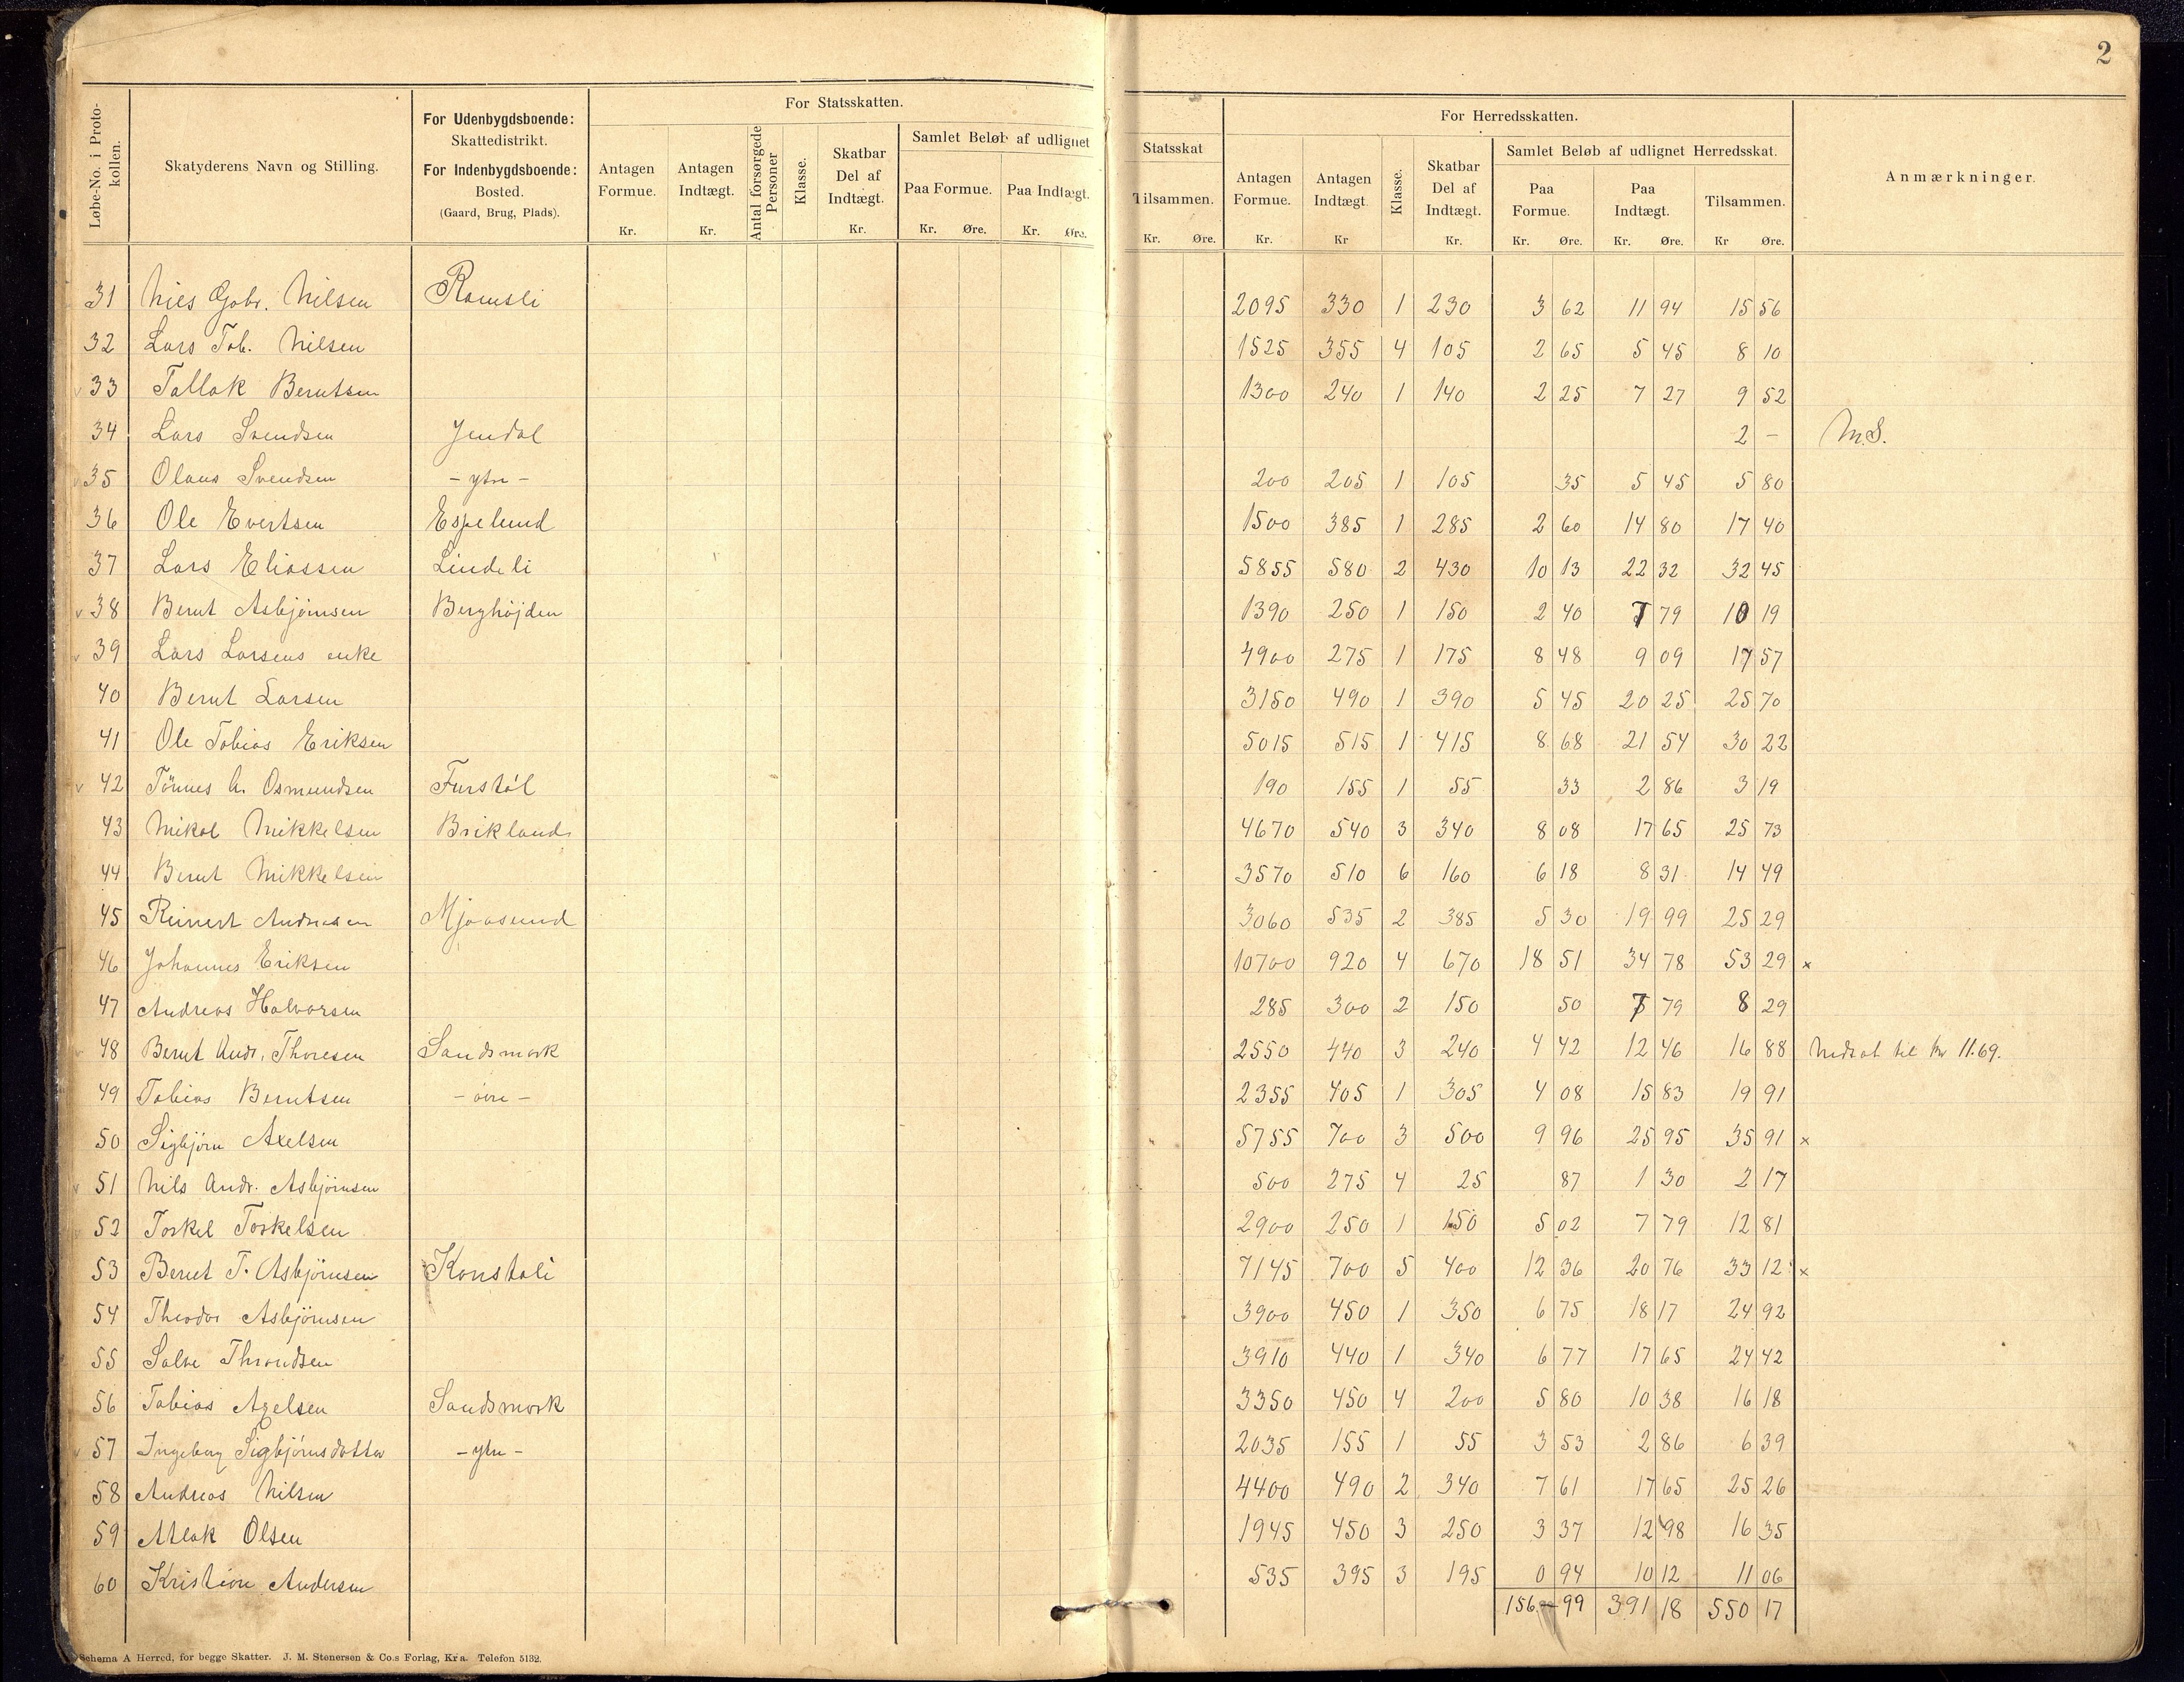 2
Løbe-No. i Proto-kollen.
Skatyderens Navn og Stilling.
For Udenbygdsboende:
Skattedistrikt.
For Indenbygdsboende:
Bosted.
(Gaard, Brug, Plads).
For Statsskatten.
Antagen Formue. Kr.
Antagen Indtægt. Kr.
Antal forsørgede Personer
Klasse.
Skatbar Del af Indtægt. Kr.
Samlet Beløb af udlignet Statsskat
Paa Formue. Kr. Øre.
Paa Indtægt. Kr. Øre.
Tilsammen. Kr. Øre.
For Herredsskatten.
Antagen Formue. Kr.
Antagen Indtægt. Kr
Klasse.
Skatbar Del af Indtægt. Kr.
Samlet Beløb af udlignet Herredsskat.
Paa Formue. Kr. Øre.
Paa Indtægt. Kr. Øre.
Tilsammen. Kr Øre.
Anmærkninger.
31 Niels Gabr. Nilsen Ramsli 2095 330 1 230 3 62 11 94 15 56
32 Lars Tob. Nilsen 1525 355 4 105 2 65 5 45 8 10
v 33 Tallak Berntsen 1300 240 1 140 2 25 7 27 9 52
34 Lars Svendsen Jendal 2 - M.S.
v 35 Olaus Svendsen - ytre - 200 205 1 105 35 5 45 5 80
36 Ole Evertsen Espelund 1500 385 1 285 2 60 14 80 17 40
37 Lars Eliassen Lindeli 5855 580 2 430 10 13 22 32 32 45
v 38 Bernt Asbjörnsen Berghöjden 1390 250 1 150 2 40 7 79 10 19
v 39 Lars Larsens enke 4900 275 1 175 8 48 9 09 17 57
40 Bernt Larsen 3150 490 1 390 5 45 20 25 25 70
41 Ole Tobias Eriksen 5015 515 1 415 8 68 21 54 30 22
v 42 Tönnes A. Osmundsen Furstöl 190 155 1 55 33 2 86 3 19
43 Mikal Mikkelsen Brikland 4670 540 3 340 8 08 17 65 25 73
44 Bernt Mikkelsen 3570 510 6 160 6 18 8 31 14 49
45 Reinert Andreasen Mjaasund 3060 535 2 385 5 30 19 99 25 29
46 Johannes Eriksen 10700 920 4 670 18 51 34 78 53 29 x
47 Andreas Halvorsen 285 300 2 150 50 7 79 8 29
v 48 Bernt Andr. Thoresen Sandsmork 2550 440 3 240 4 42 12 46 16 88 Nedsat til kr 11.69.
49 Tobias Berntsen - övre - 2355 405 1 305 4 08 15 83 19 91
50 Sigbjörn Axelsen 5755 700 3 500 9 96 25 95 35 91 x
v 51 Nils Andr. Asbjörnsen 500 275 4 25 87 1 30 2 17
v 52 Torkel Torkelsen 2900 250 1 150 5 02 7 79 12 81
53 Bernt T. Asbjörnsen Konstali 7145 700 5 400 12 36 20 76 33 12 x
54 Theodor Asbjörnsen 3900 450 1 350 6 75 18 17 24 92
55 Salve Throndsen 3910 440 1 340 6 77 17 65 24 42
56 Tobias Axelsen Sandsmork 3350 450 4 200 5 80 10 38 16 18
v 57 Ingeborg Sigbjörnsdatter - ytre - 2035 155 1 55 3 53 2 86 6 39
58 Andreas Nilsen 4400 490 2 340 7 61 17 65 25 26
59 Atlak Olsen 1945 450 3 250 3 37 12 98 16 35
60 Kristian Andersen 535 395 3 195 0 94 10 12 11 06
156 - 99 391 18 550 17
Schema A Herred, for begge Skatter. J. M. Stenersen & Co.s Forlag, Kra. Telefon 5132.